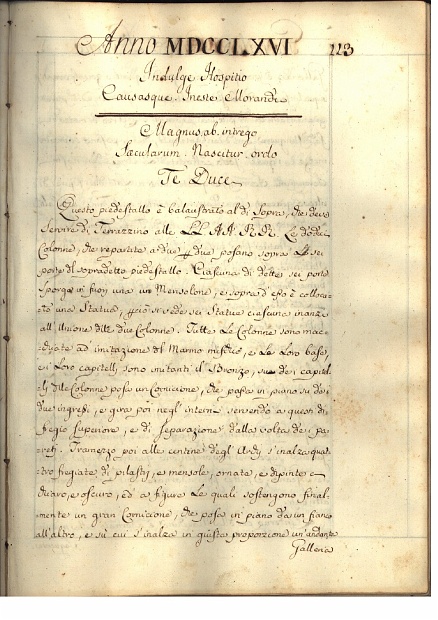 Anno MDCCLXVI 223
Indulge Hospitio
Causasque Ineste Morandi
Magnus ab integro
Sæcularum Nascitur ordo
Te Duce
Questo piedestallo è balaustrato al di Sopra, che deve
Servire di Terrazzino alle LL. AA. RR. Le dodeci
Colonne, che repartite a due p due posano sopra Le sei
porte del sopradetto piedestallo. Ciascuna di dette sei porte
Sporge in fuori una un Mensolone, e sopra d'esso è colloca-
ta una Statua, sei Statue ciascuna inanzi
all'Unione delle due Colonne. Tutte Le Colonne sono mac-
chiate ad imitazione del Marmo mischio, e Le Loro base,
e i Loro capitelli, sono imitanti il Bronzo, su dei capitel-
li delle Colonne posa un Cornicione, che passa in piano su de i
due ingressi, e gira poi negl'interni servendo a questi di
fregio Superiore, e di Separazione dalla volta de i pa-
reti. Framezzo poi alle centine degl'Archi s'inalza qua-
tro fregiate di pilastri, e mensole, ornate, e dipinte a
chiaro, e oscuro, ed a figure Le quali sostengono final-
mente un gran Cornicione, che posa in piano da un fianco
all'altro, e sù cui s'inalza in giusta proporzione un'andante
Galleria